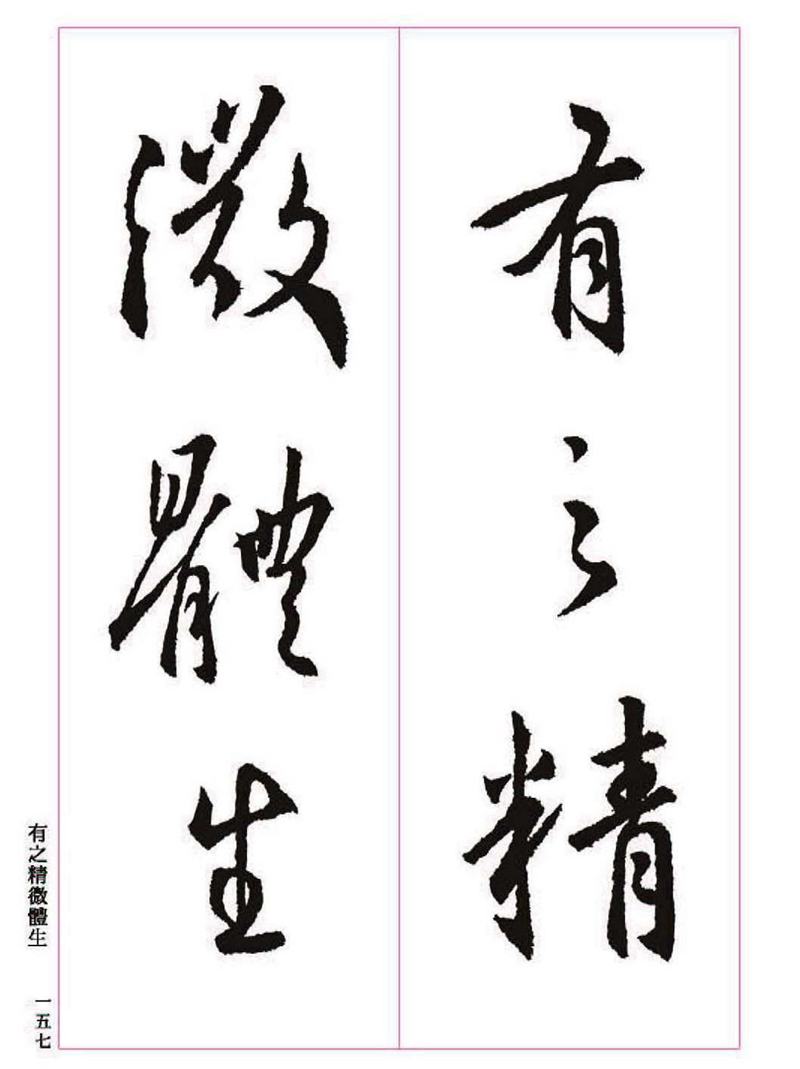 有之精
微體生
有之精微體生
一五七